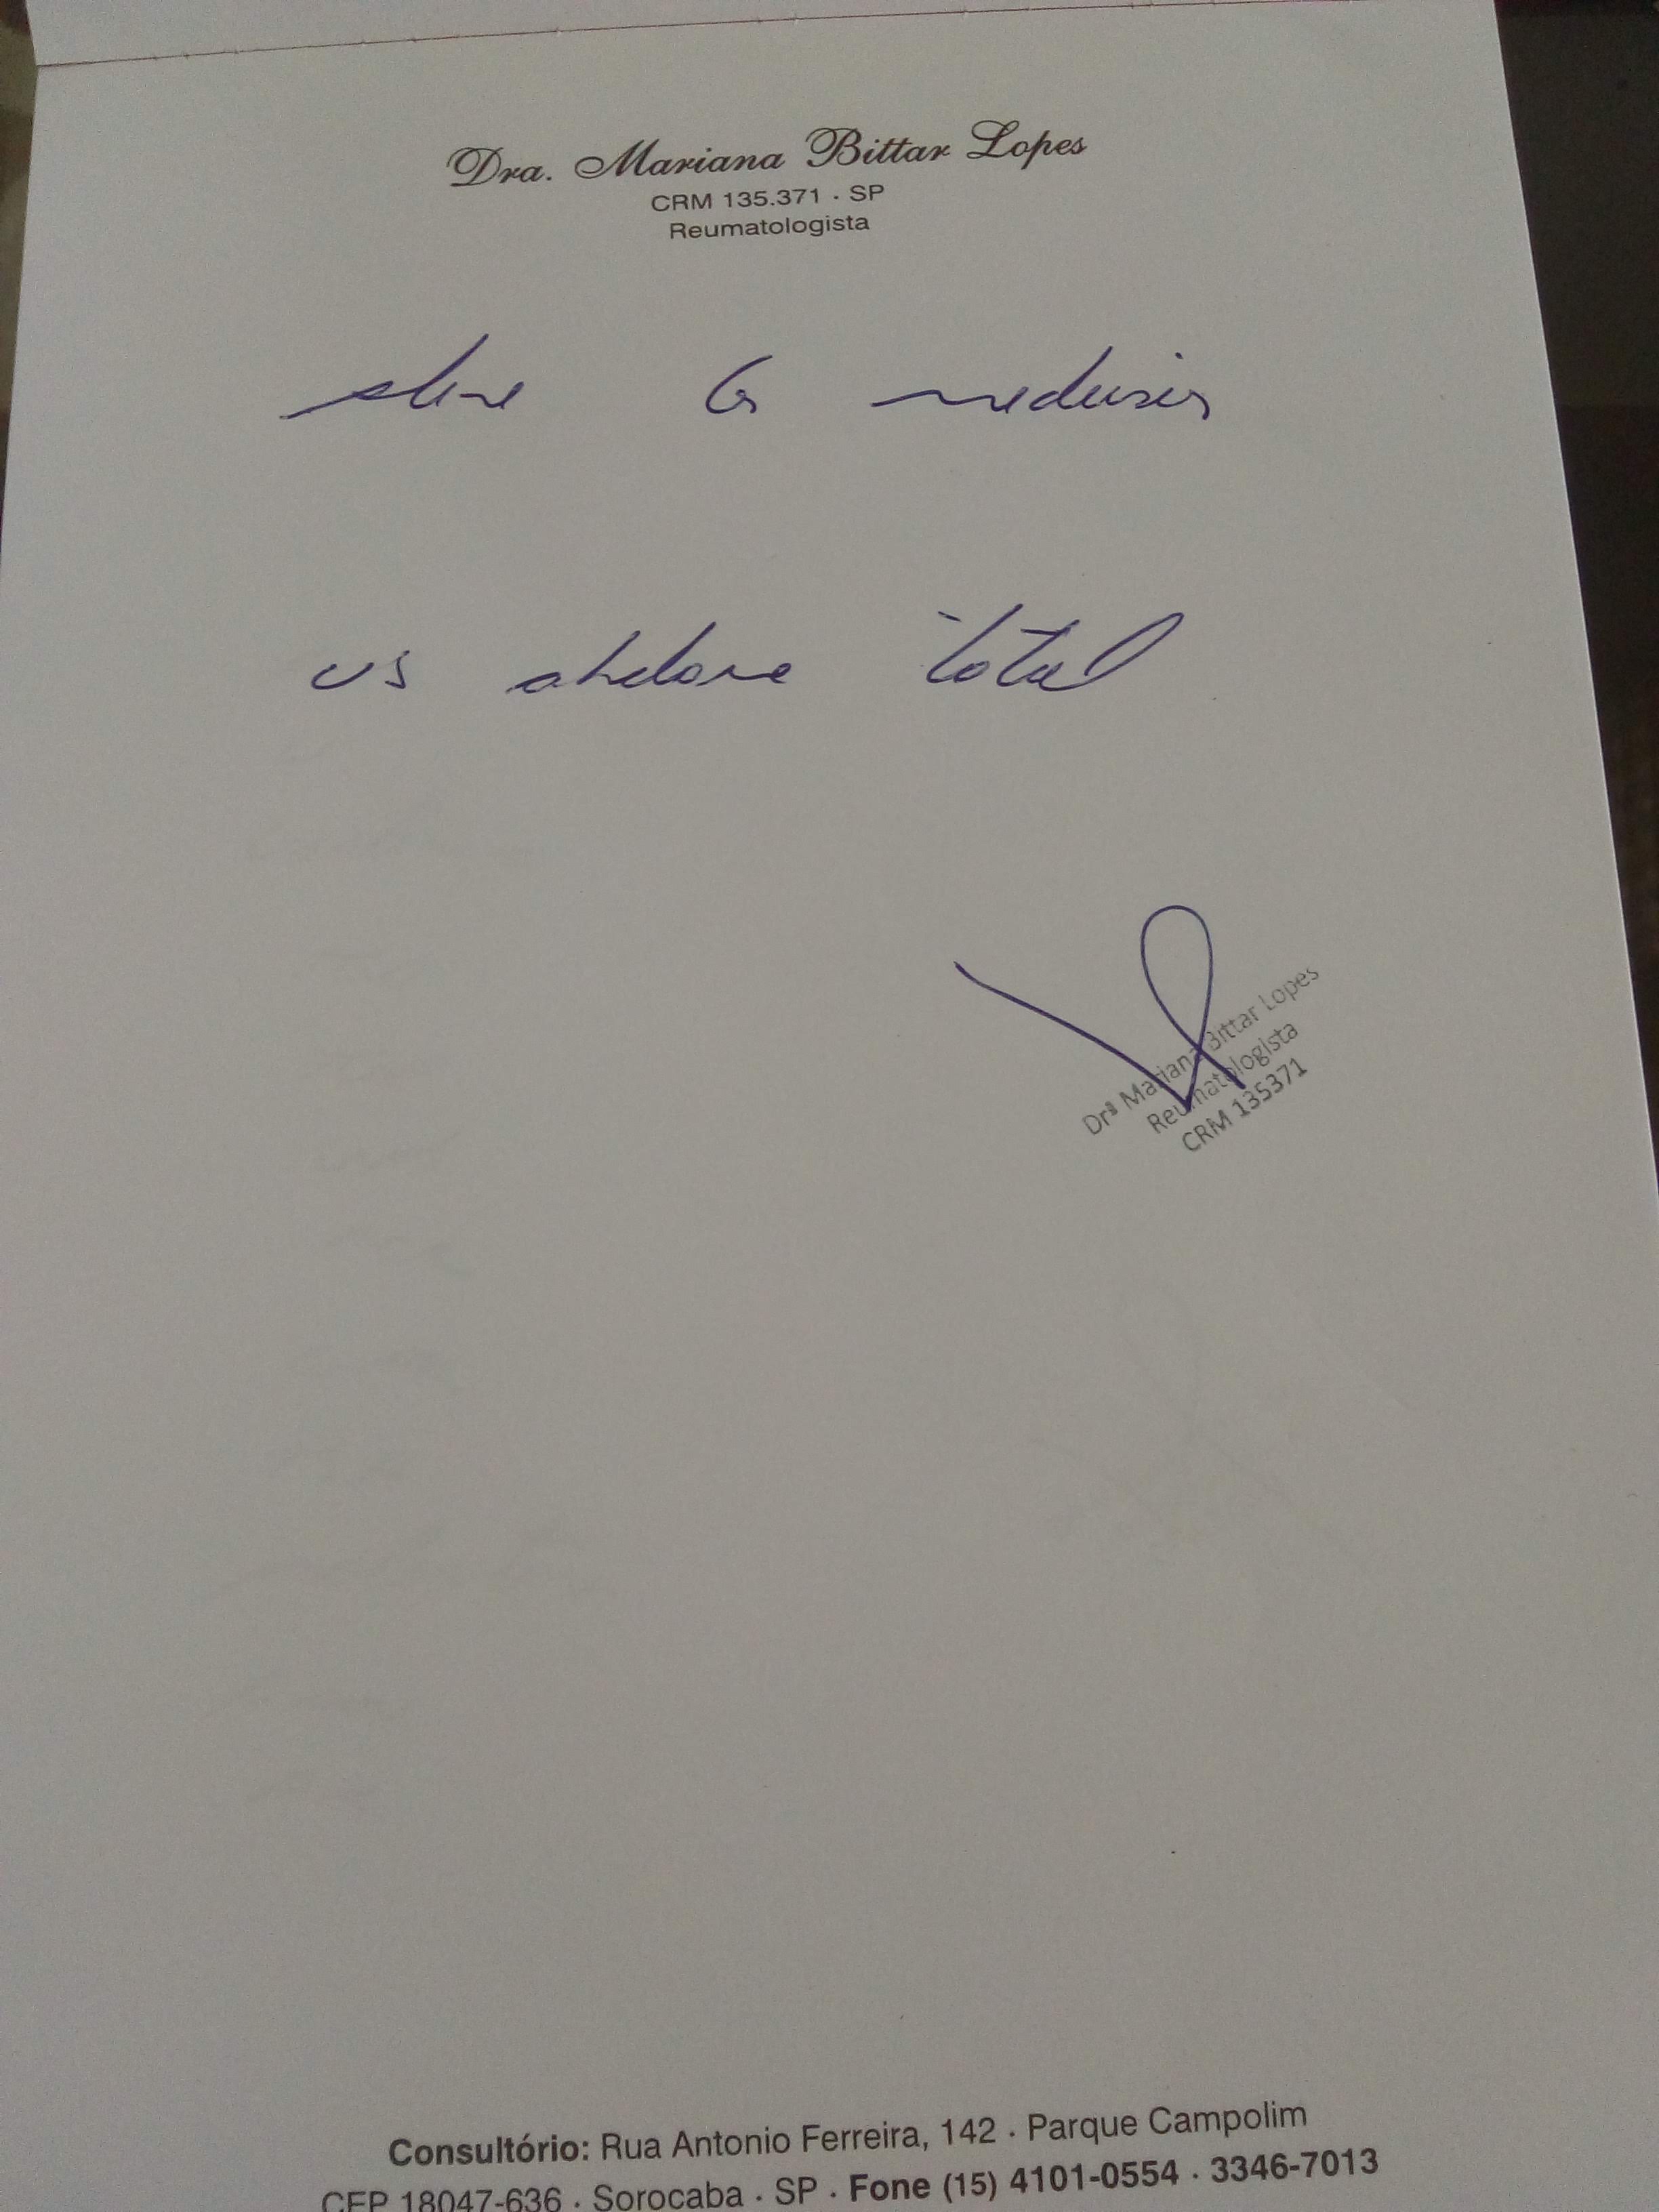 Dra. Mariana Bittar Lopes
CRM 135.371 · SP
Reumatologista
US abdome total
Drª Mariana Bittar Lopes
Reumatologista
CRM 135371
Consultório: Rua Antonio Ferreira, 142 · Parque Campolim
CEP 18047-636 · Sorocaba · SP · Fone (15) 4101-0554 · 3346-7013